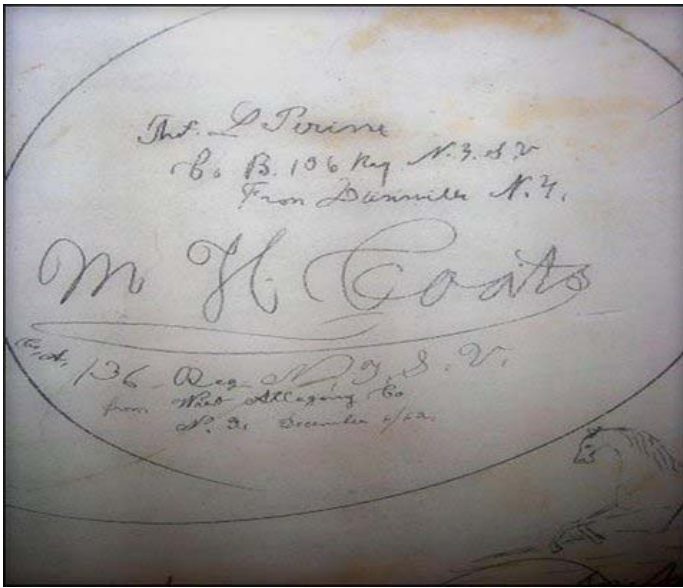 Thos. D Perine
Co B. 136 Reg N.Y.S.V
From Dannsville N.Y.
M H Coats
Co, A, 136 Reg N, Y, S. V.
from West Allegany Co
N. Y. December 6/62.